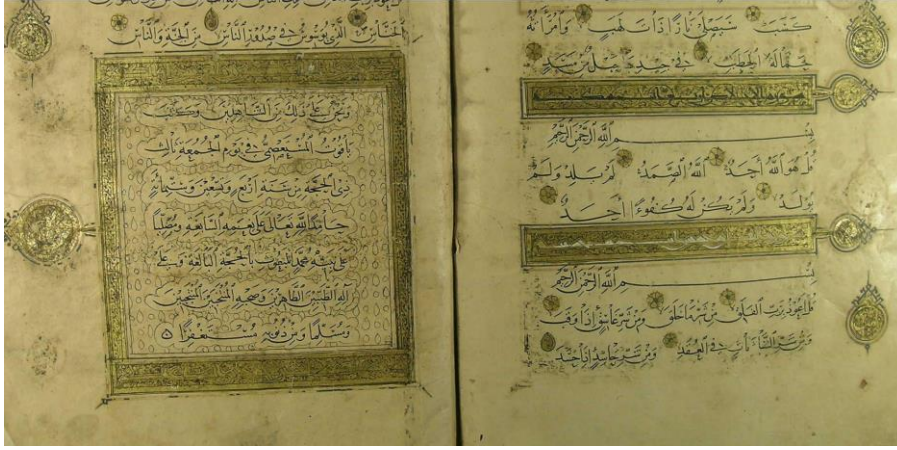 كسب سيصلى نارا ذات لهب وامرأته
حمالة الحطب في جيدها حبل من مسد
بسم الله الرحمن الرحيم
قل هو الله أحد الله الصمد لم يلد ولم
يولد ولم يكن له كفوءا أحد
بسم الله الرحمن الرحيم
قل أعوذ برب الفلق من شر ما خلق ومن شر غاسق إذا وقب
ومن شر النفاثات في العقد ومن شر حاسد إذا حسد
الخناس الذي يوسوس في صدور الناس من الجنة والناس
ونحن على ذلك من الشاهدين وكتب
ياقوت المستعصمي في يوم الجمعة ثالث
ذي الحجة من سنة أربع وتسعين وستمائة
حامدا لله تعالى على نعمه السابغة ومصليا
على نبيه محمد بالحجة البالغة وعلى
آله الطيبين الطاهرين وصحبه
ومسلما ومن ذنوبه مستغفرا